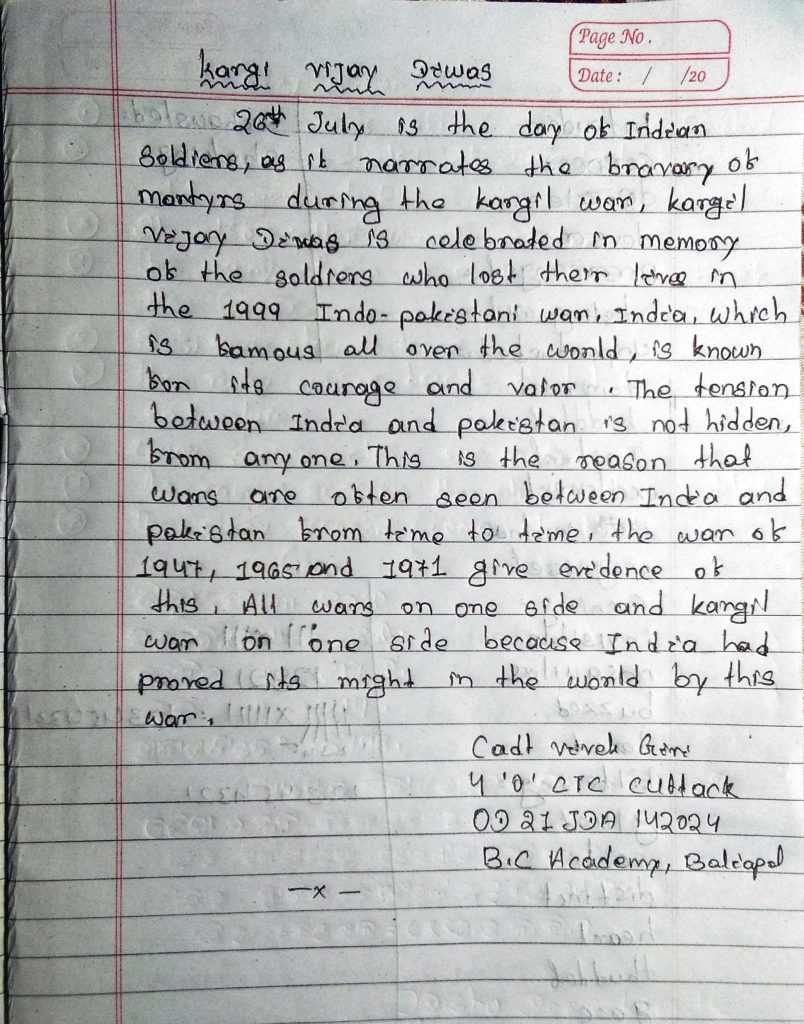 Page No.
Date: / /20
Kargi vijay Diwas
26th July is the day of Indian
Soldiers, as it narrates the bravary of
martyrs during the kargil war, kargil
Vijay Diwas is celebrated in memory
of the soldiers who lost their lives in
the 1999 Indo-pakistani war, India, which
is famous all over the world, is known
for its courage and valor. The tension
between India and pakistan is not hidden,
from any one. This is the reason that
wars are often seen between India and
pakistan from time to time, the war of
1947, 1965 and 1971 give evidence of
this, All wars on one side and kargil
war on one side because India had
proved its might in the world by this
war.
Cadt vivek Giri
4 'O' CTC Cuttack
OD 21 JDA 142024
B.C Academy, Baliapal
—x—